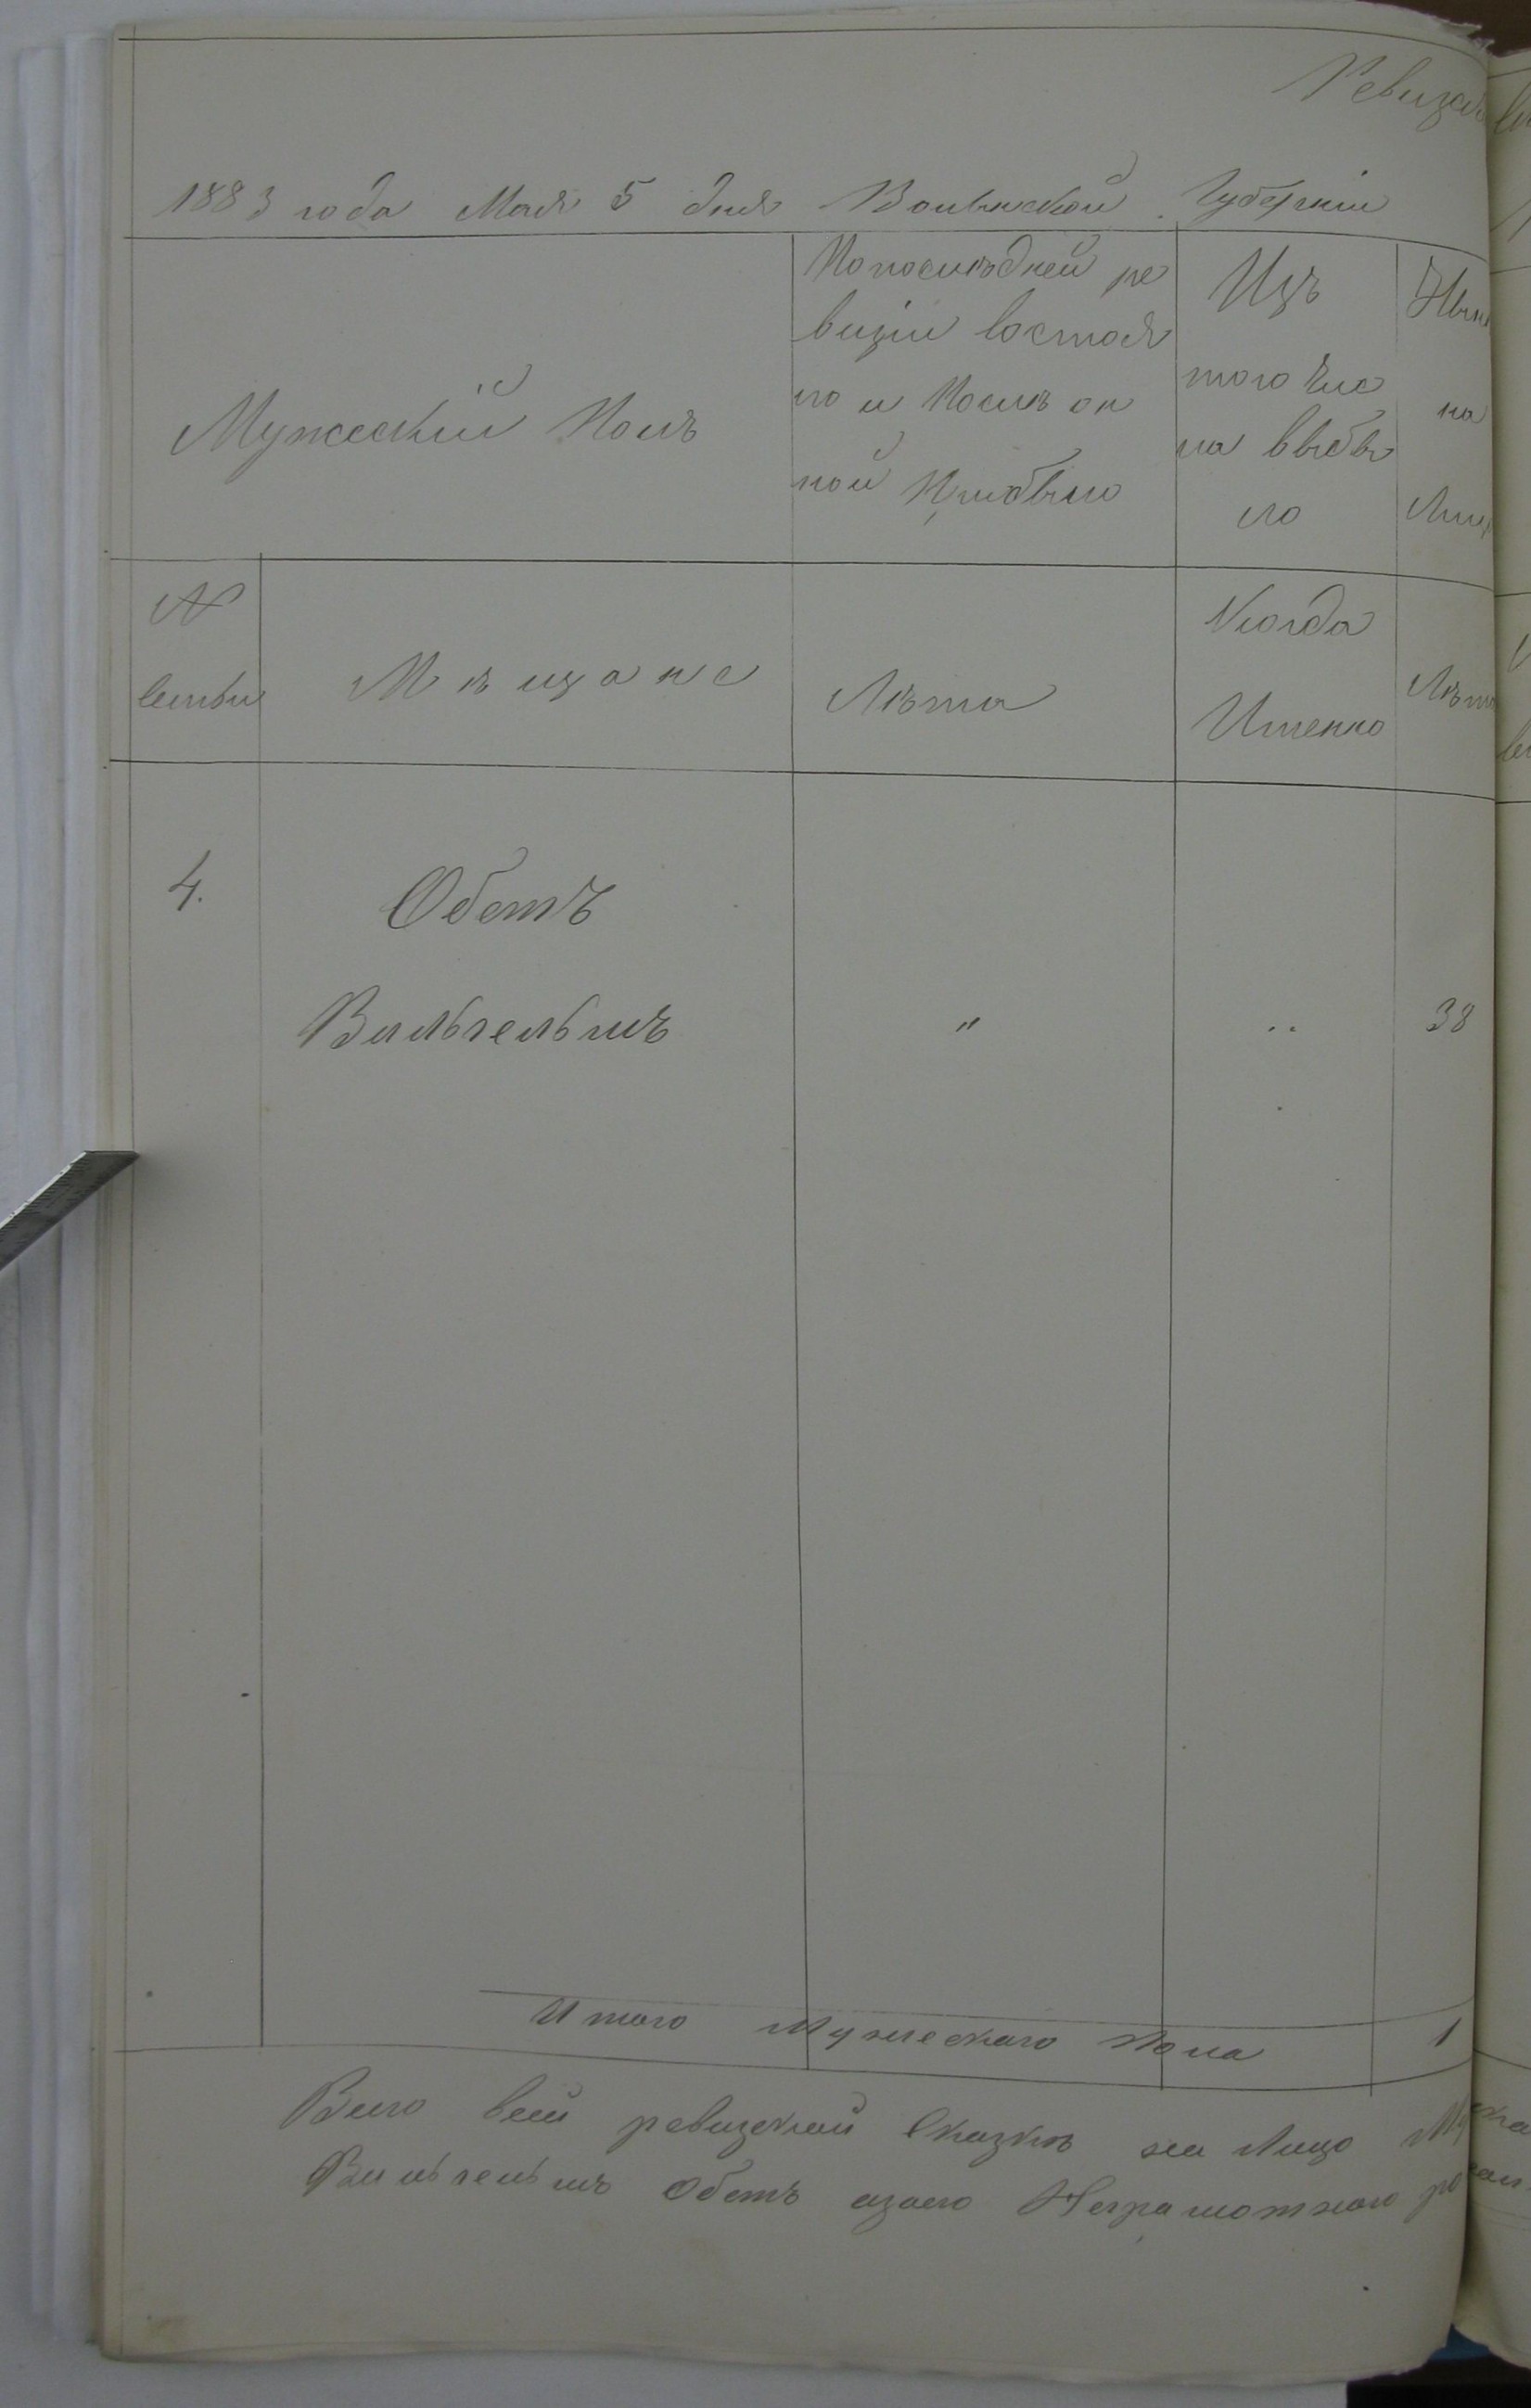 Ревизск
1883 года Мая 5 дня Волынской Губерніи
Мужескій Полъ
По послѣдней ре
визіи состоя
ло и Послѣ он
ной Прибыло
Изъ
того Чис
ла выбы
ло
Нын
на
Лиц
№
семьи
Мѣщане
Лѣта
Когда
Именно
Лѣта
4.
Обетъ
Вильгельмъ " .. 38
Итого Мужескаго Пола 1
Всего всей ревизской Сказкѣ на Лицо
Вильгельмъ Обетъ азаего Неграмотнаго